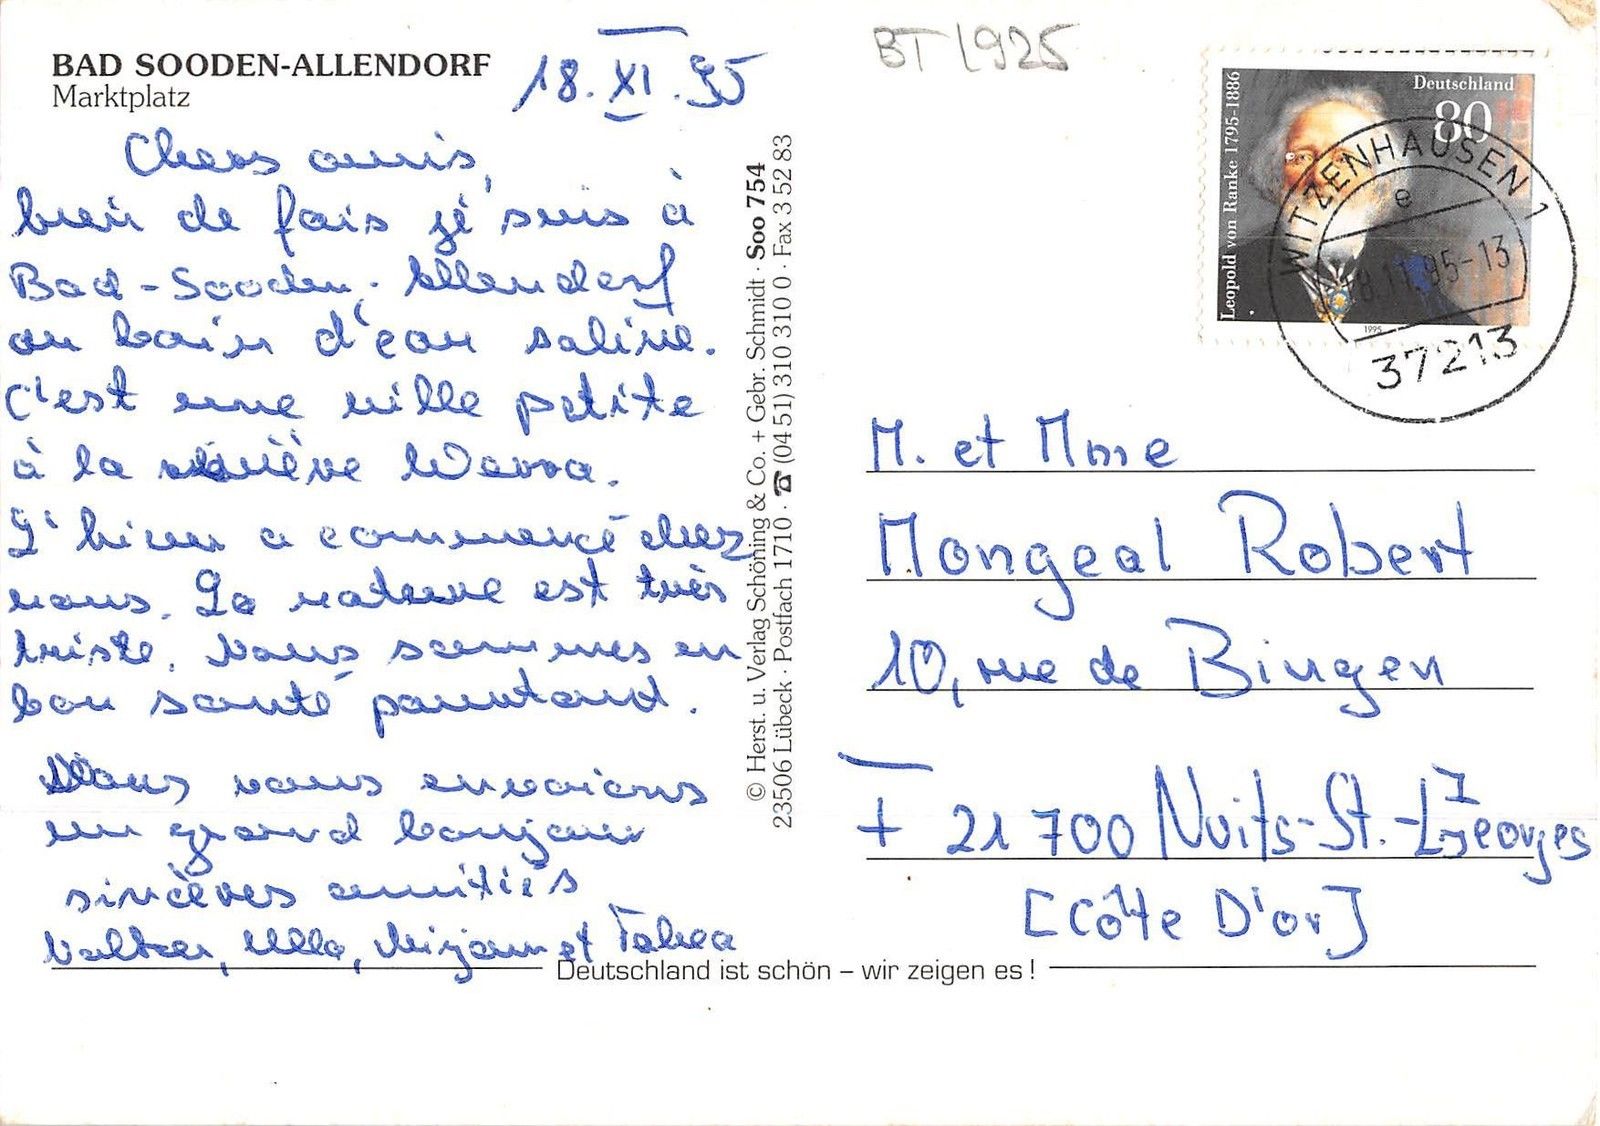 BAD SOODEN-ALLENDORF
Marktplatz
18. XI. 95
Chers amis,
bien de fais je suis à
Bad-Sooden-Allendorf
au bain d'eau saline.
C'est une ville petite
à la rivière Werra.
L'hiver a commencé chez
nous. La nature est très
triste. Nous sommes en
bon santé pourtant.
Nous vous envoions
un grand bonjour
sincères amitiés
Volker, Ulla, Mirjam et Tabea
© Herst. u. Verlag Schöning & Co. + Gebr. Schmidt · Soo 754
23506 Lübeck · Postfach 1710 · ☎ (04 51) 310 310 0 · Fax 3 52 83
BT 1925
Deutschland
80
Leopold von Ranke 1795-1886
1995
WITZENHAUSEN 1
e
18.11.95-13
37213
M. et Mme
Mongeal Robert
10, rue de Bingen
21 700 Nuits-St.-Georges
[Côte D'or]
Deutschland ist schön – wir zeigen es !